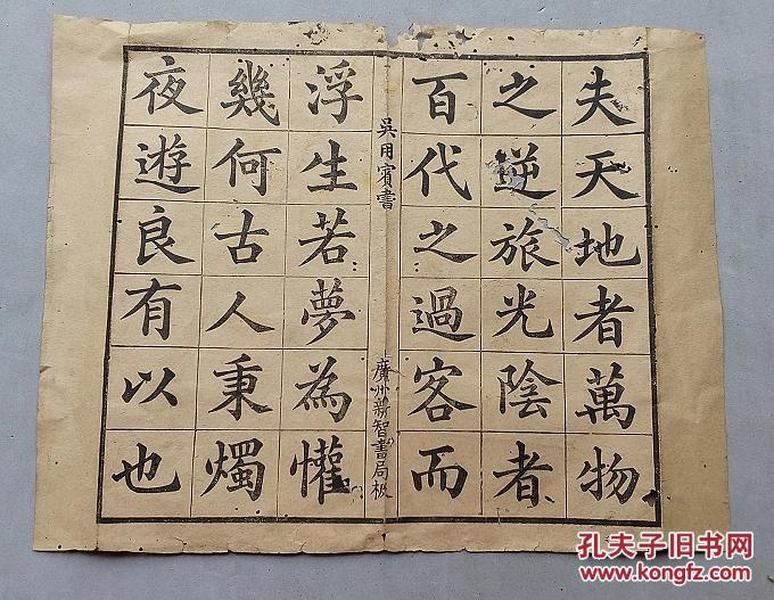 夫天地者萬物
之逆旅光陰者
百代之過客而
吳用賓書
廣州新智書局板
浮生若夢為懽
幾何古人秉燭
夜遊良有以也
孔夫子旧书网
www.kongfz.com